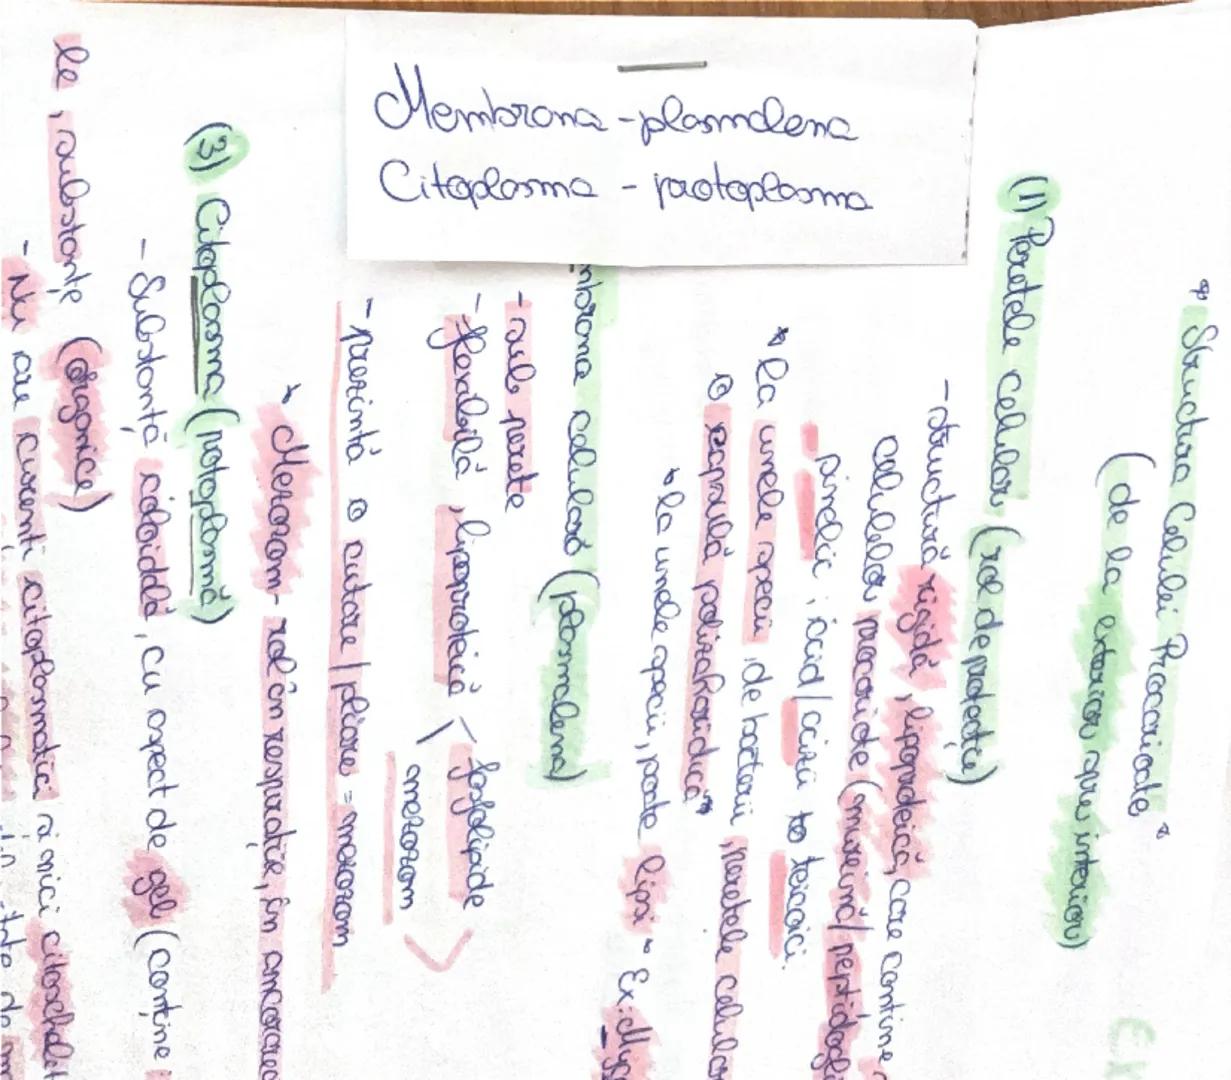 Membrana - plasmalema
Citoplasma - protoplasma
* Structura Celulei Procariote *
(de la exterior spre interior)
(1) Peretele celular (rol de protecție)
- structură rigidă, lipoproteică, care contine
celulelor procariote (mureină/peptidogli
pirolici, acid/acizi to teicoici.
* la unele specii, de bacterii, peretele celular
o capsulă polizaharidică"
* la unele specii, poate lipsi " Ex: Myc
mbrana celulară (plasmalema)
- sub perete
- flexibilă, lipoproteică - fosfolipide
mezozom
- prezintă o cutare/pliare = mezozom
* Mezozom - rol în respirație, în ancorarea
(3) Citoplasma (protoplasmă)
- Substanță coloidală, cu aspect de gel (conține
le, substanțe (organice)
- Nu are curenti citoplasmatici și nici citoschelet